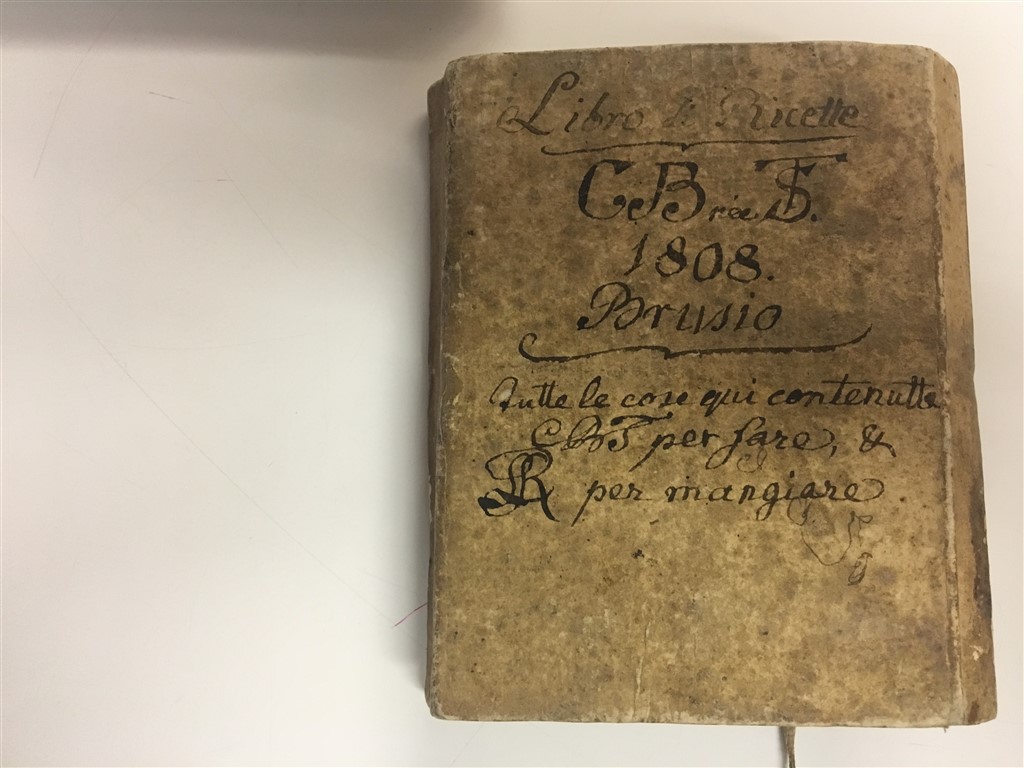 Libro di Ricette
CB née TS.
1808.
Brusio
tutte le cose qui contenutte
CBT per fare, &
R per mangiare.